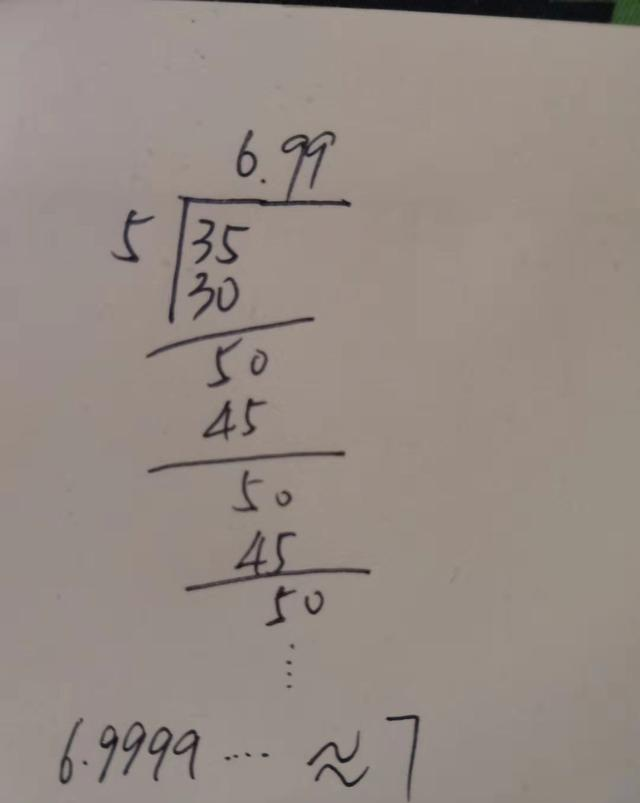 6.99
5 35
30
50
45
50
45
50
⋮
6.9999 ···· ≈ 7